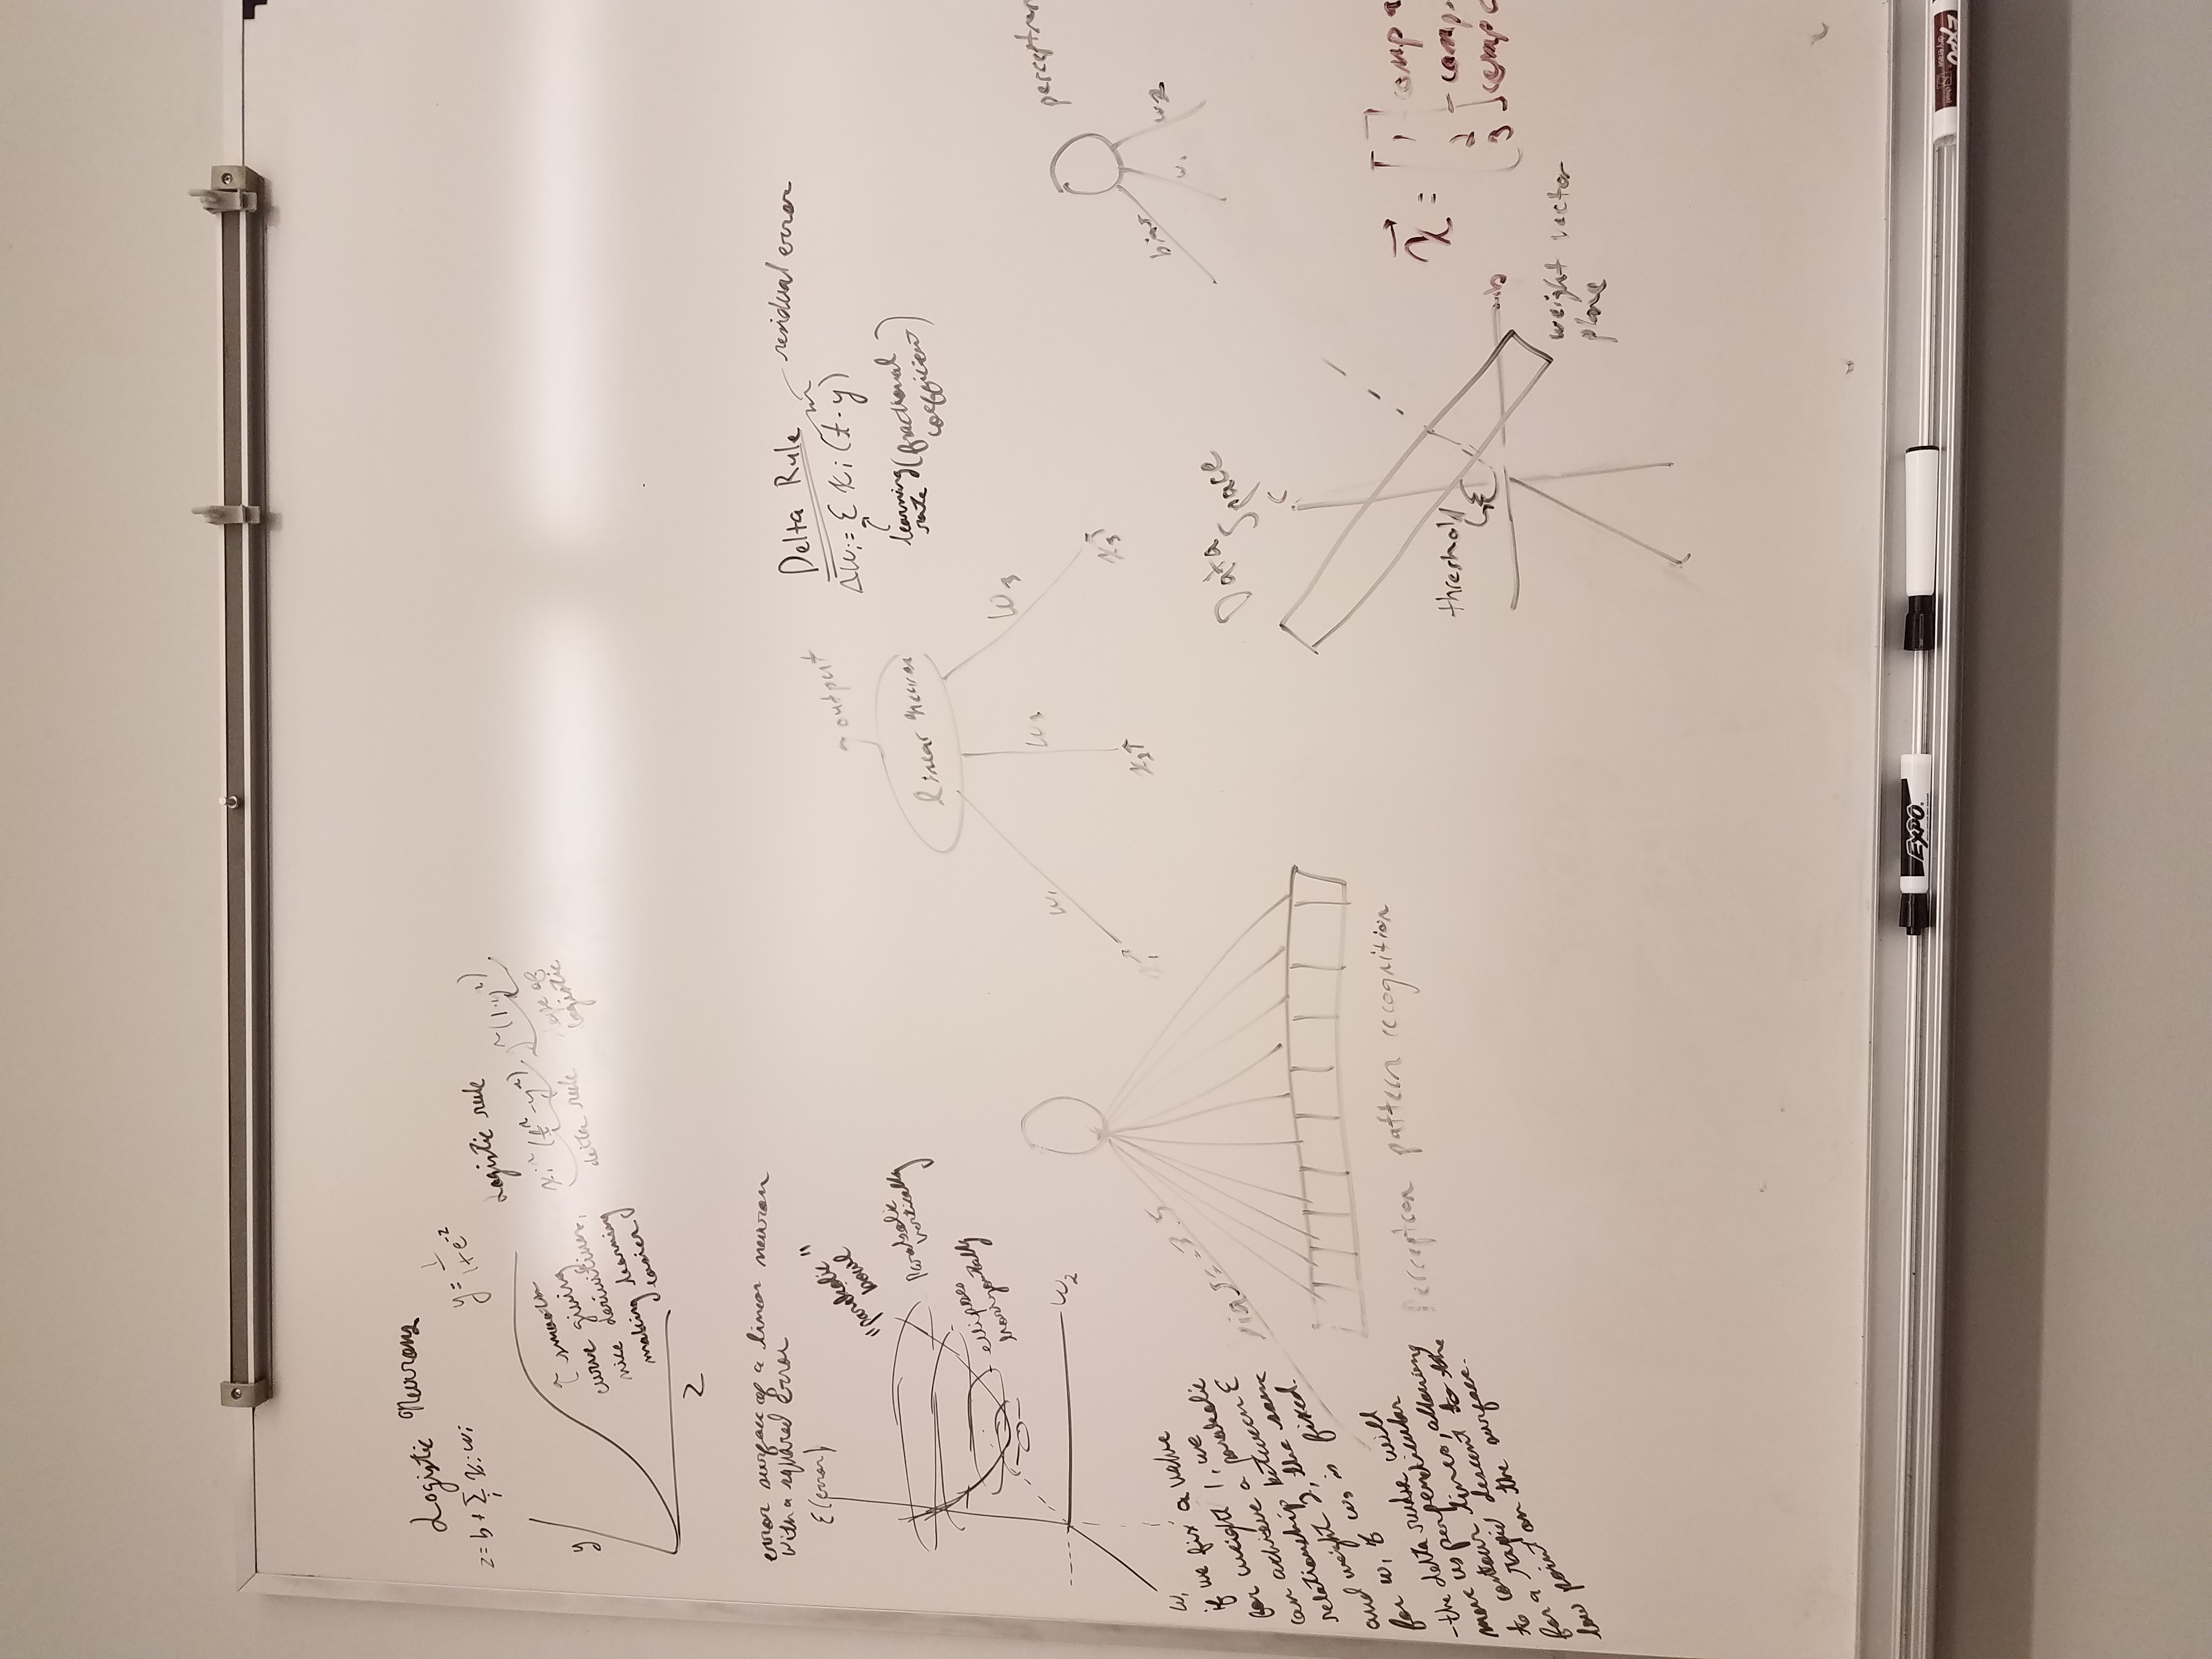 Logistic Neurons
z = b + Σ xᵢ wᵢ
i
y = 1 / 1 + e⁻ᶻ
y
z
↑ smooth
curve giving
nice derivitives,
making learning
easier
Logistic rule
xᵢⁿ (tⁿ - yⁿ) · yⁿ (1 - yⁿ)
delta rule
slope of
logistic
error surface of a linear neuron
with a squared error
E(error)
"parabolic"
bowl
Parabolic
vertically
ellipses
horizontally
w₂
w₁
if we fix a value
for weight 1, we
can achieve a parabolic
relationship between E
and weight 2, the same
for w₁ if w₂ is fixed.
- the delta rule will
move us perpendicular
to contour lines, allowing
for a rapid descent to the
low point on the surface.
bias = -3.5
Perceptron pattern recognition
output
linear neuron
w₁
w₂
w₃
x₁↑
x₂↑
x₃↑
Delta Rule
residual error
Δwᵢ = ε xᵢ (t - y)
learning
rate
(fractional
coefficient)
bias
w₁
w₂
Data
Space
c
threshold
b
weight vector
plane
x⃗ =
1
2
3
comp
comp
EXPO
EXPO
dry erase